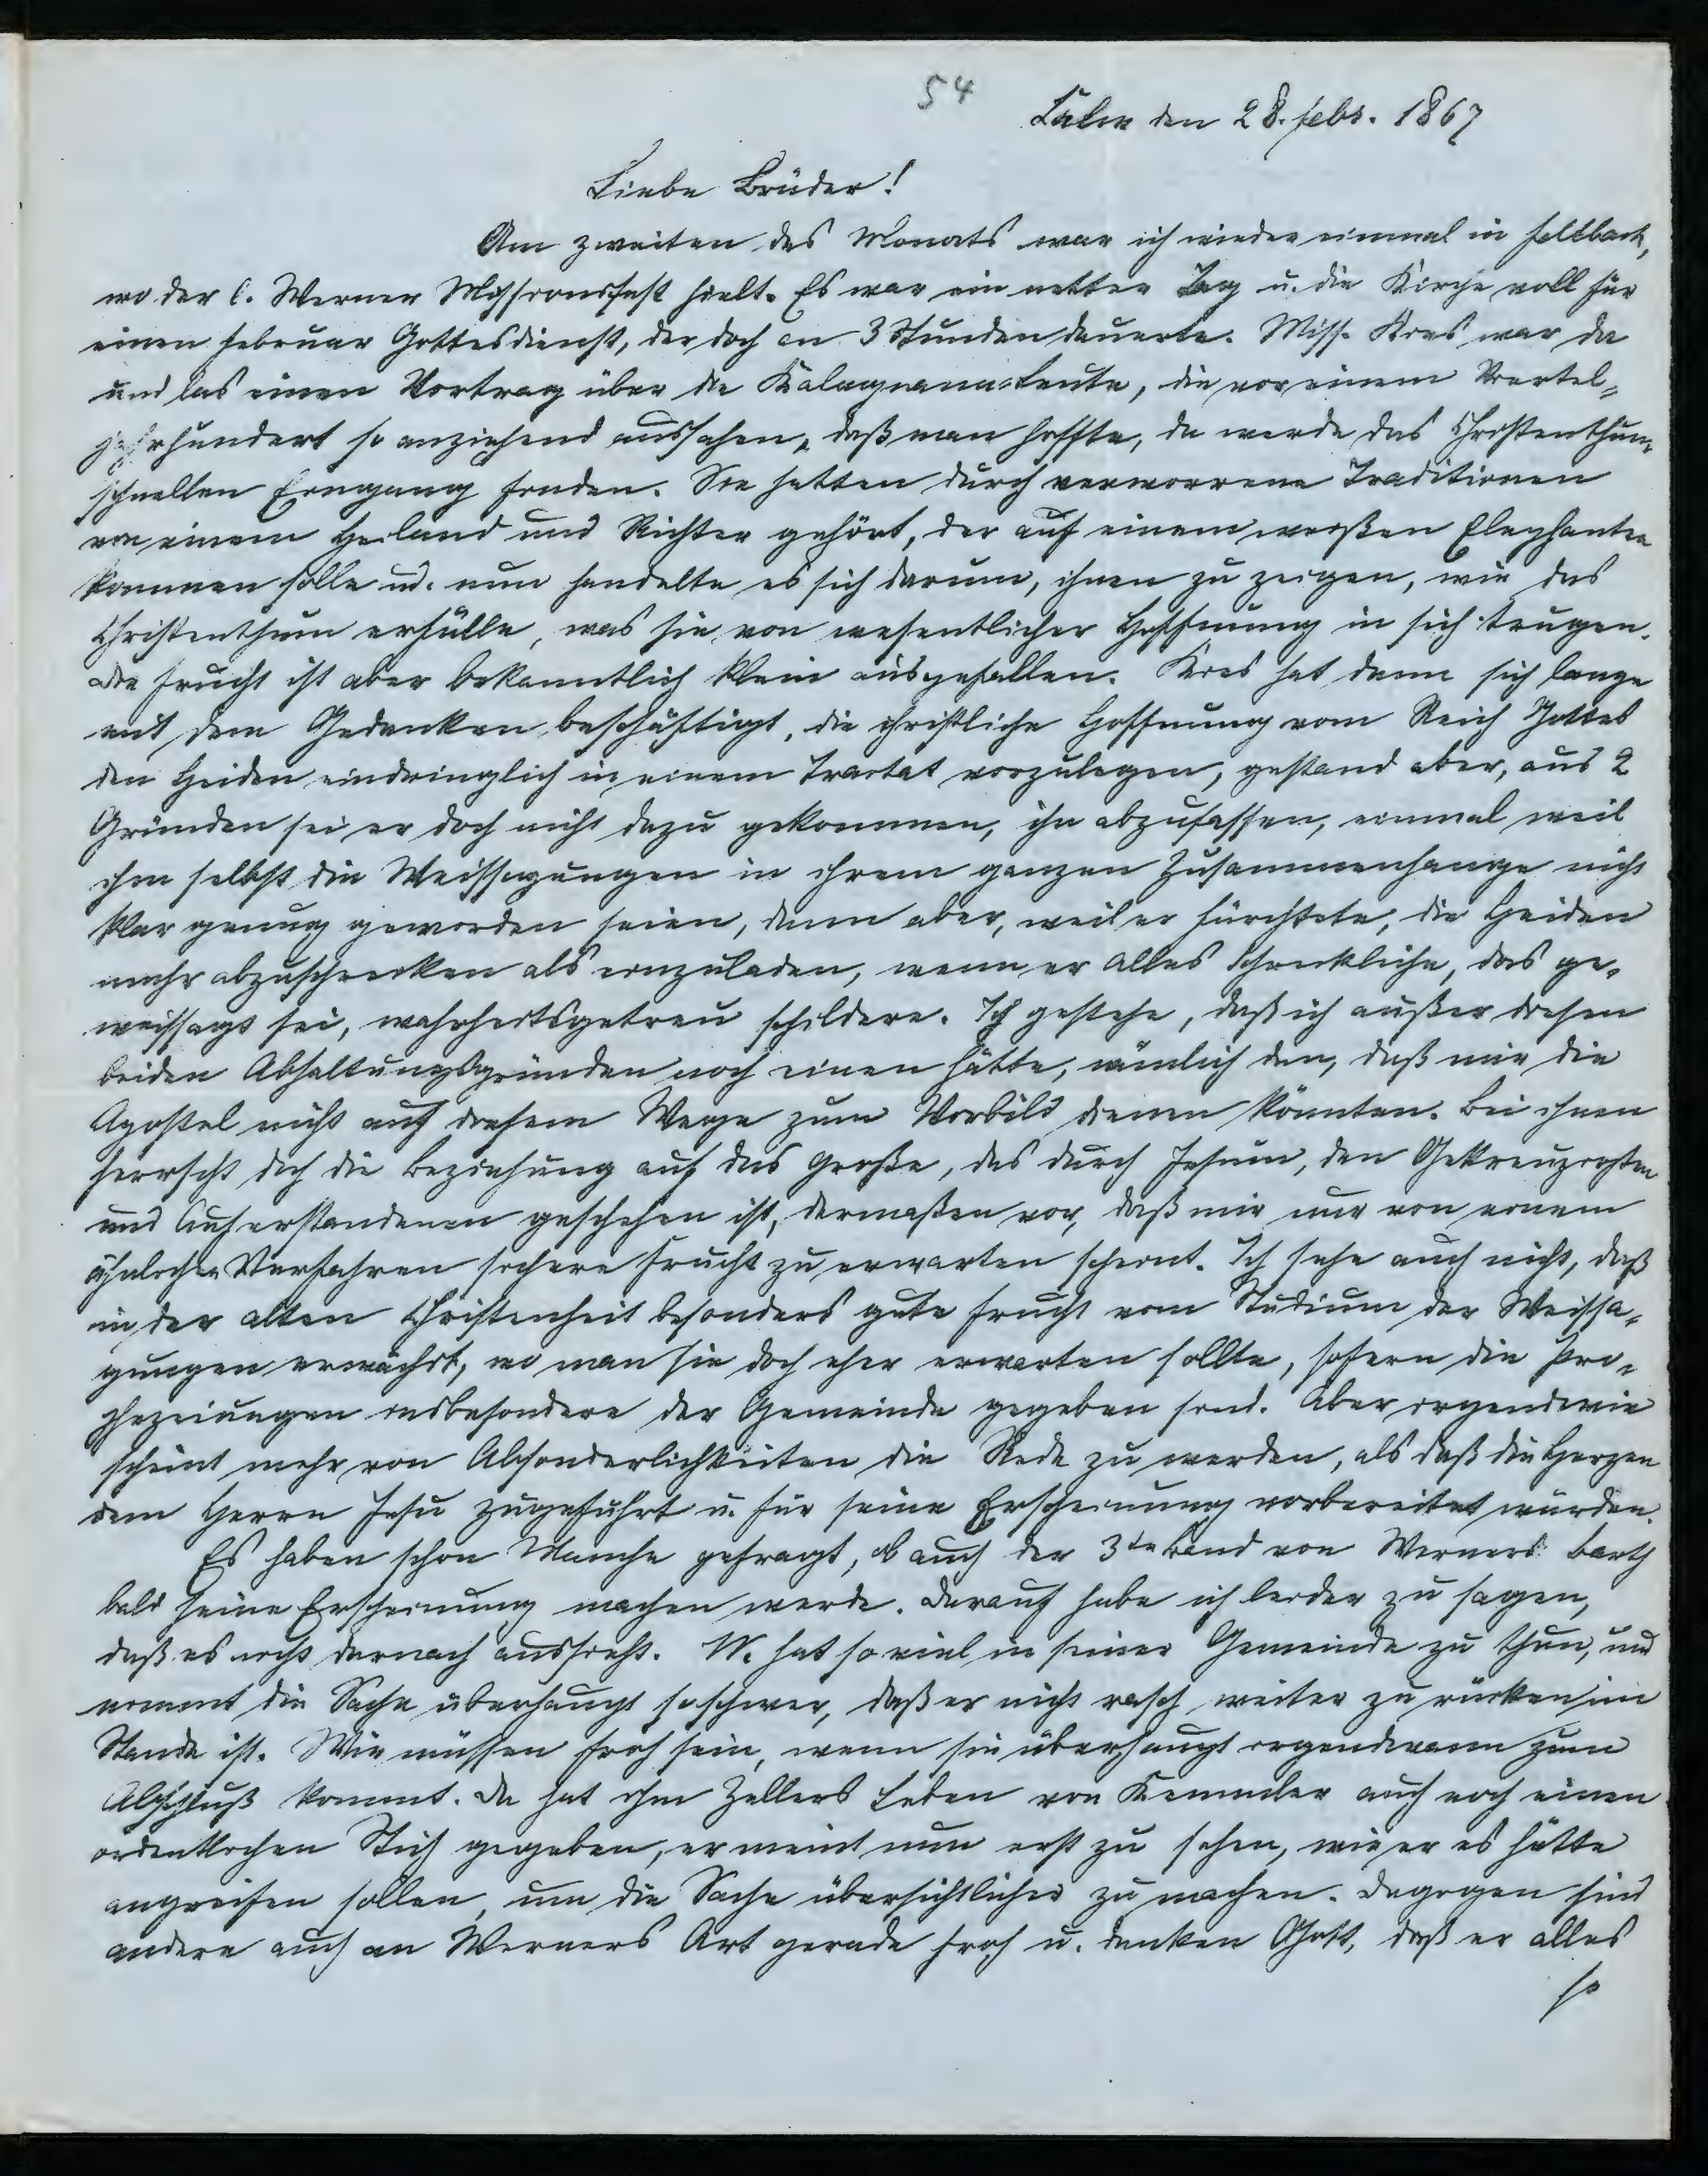 54
Calw den 28. Febr. 1867
Liebe Brüder!
Am zweiten des Monats war ich wieder einmal in Fellbach,
wo der l. Werner Missionsfest hielt. Es war ein netter Tag u. die Kirche voll für
einen Februar Gottesdienst, der doch an 3 Stunden dauerte. Miss. Kies war da
und las einen Vortrag über die Kalagnana-Leute, die vor einem Viertel-
jahrhundert so anziehend aussahen, daß man hoffte, da werde das Christenthum
schnellen Eingang finden. Sie hatten durch verworrene Traditionen
von einem Heiland und Richter gehört, der auf einem weißen Elephanten
kommen solle u. nun handelte es sich darum, ihnen zu zeigen, wie das
Christenthum erfülle, was sie von wesentlicher Hoffnung in sich trugen.
Die Frucht ist aber bekanntlich klein ausgefallen. Kies hat dann sich lange
mit dem Gedanken beschäftigt, die christliche Hoffnung vom Reich Gottes
den Heiden eindringlich in einem Tractat vorzulegen, gestand aber, aus 2
Gründen sei er doch nicht dazu gekommen, ihn abzufassen, einmal weil
ihm selbst die Weissagungen in ihrem ganzen Zusammenhange nicht
klar genug geworden seien, dann aber, weil er fürchtete, die Heiden
mehr abzuschrecken als einzuladen, wenn er alles Schreckliche, das ge-
weissagt sei, wahrheitsgetreu schildere. Ich gestehe, daß ich außer diesen
beiden Abhaltungsgründen noch einen hätte, nämlich den, daß mir die
Apostel nicht auf diesem Wege zum Vorbild dienen könnten. Bei ihnen
herrscht doch die Beziehung auf das Große, das durch Jesum, den Gekreuzigten
und Auferstandenen geschehen ist, dermaßen vor, daß mir nur von einem
ähnlichen Verfahren sichere Frucht zu erwarten scheint. Ich sehe auch nicht, daß
in der alten Christenheit besonders gute Frucht vom Studium der Weissa-
gungen erwächst, wo man sie doch eher erwarten sollte, sofern die Pro-
phezeiungen insbesondere der Gemeinde gegeben sind. Aber irgendwie
scheint mehr von Absonderlichkeiten die Rede zu werden, als daß die Herzen
dem Herrn Jesu zugeführt u. für seine Erscheinung vorbereitet würden.
Es haben schon Manche gefragt, ob auch der 3te Band von Werners Barth
bald seine Erscheinung machen werde. Darauf habe ich leider zu sagen,
daß es nicht darnach aussieht. W. hat so viel in seiner Gemeinde zu thun, und
nimmt die Sache überhaupt so schwer, daß er nicht rasch weiter zu rücken im
Stande ist. Wir müssen froh sein, wenn sie überhaupt irgendwann zum
Abschluß kommt. Da hat ihm Zellers Leben von Kemmler auch noch einen
ordentlichen Stich gegeben, er meint nun erst zu sehen, wie er es hätte
angreifen sollen, um die Sache übersichtlicher zu machen. Dagegen sind
andere auch an Werners Art gerade froh u. danken Gott, daß er alles
so